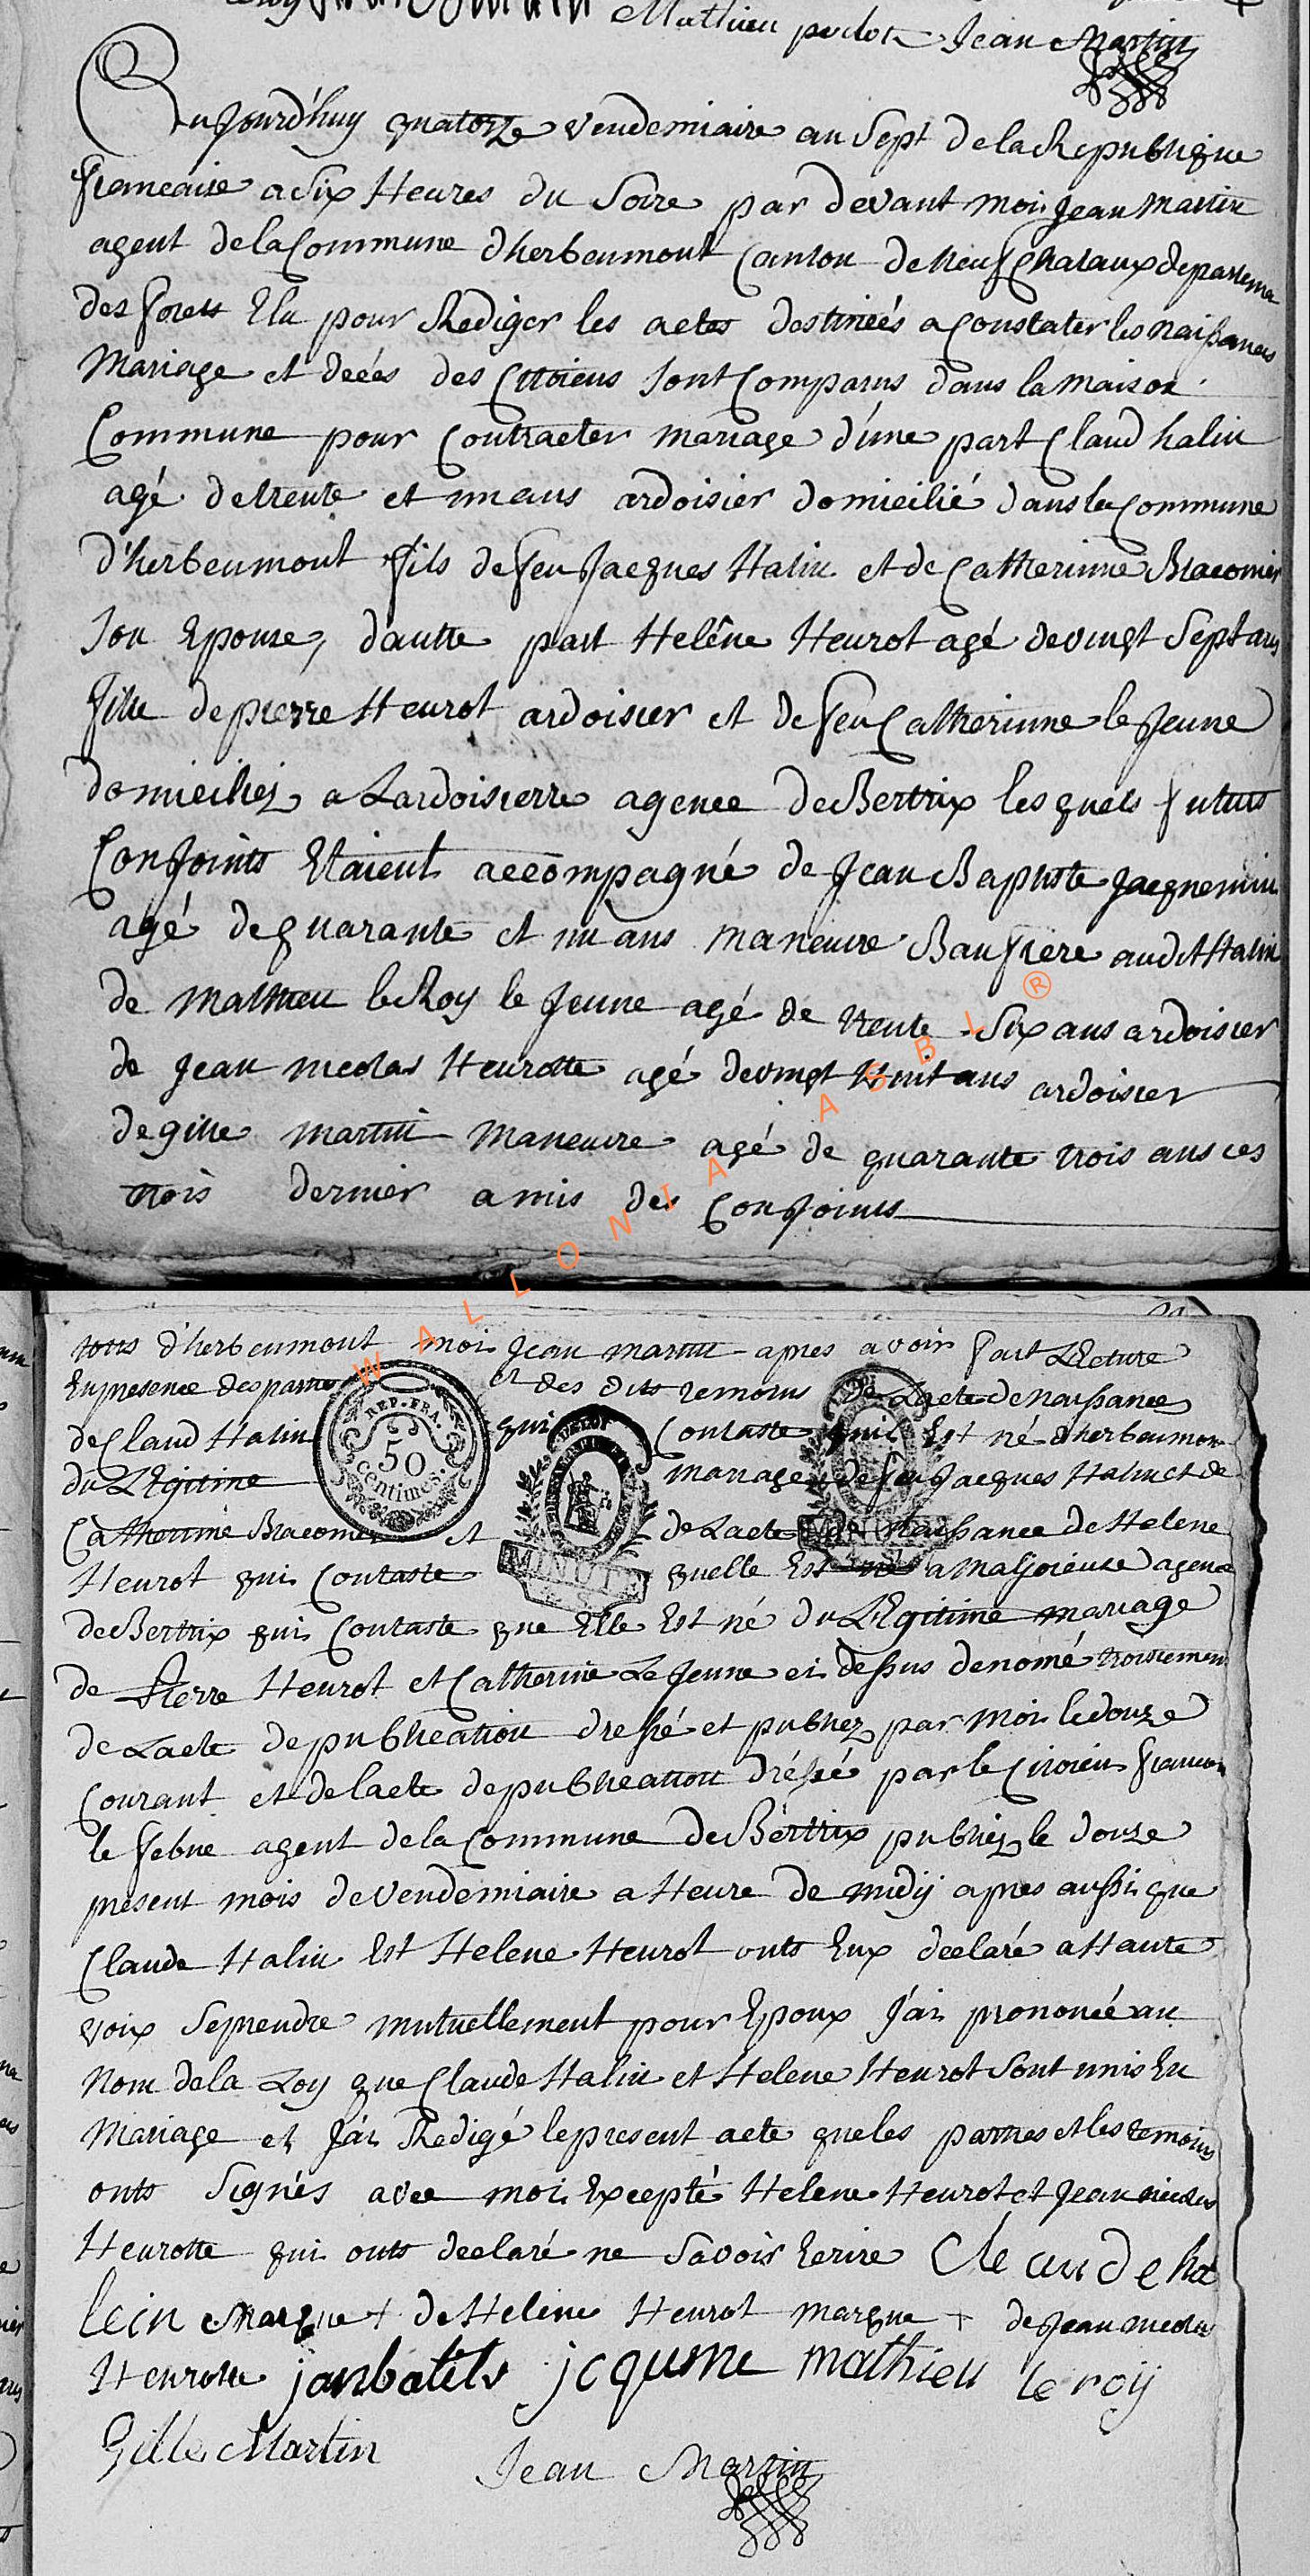 Mathieu pierlot Jean Martin
Aujourd'huy quatorze vendemiaire an Sept de la Republique
francaise a Six Heures du Soire par devant moi Jean Martin
agent de la Commune dherbeumont Canton de Neufchataux departeme
des forets Elu pour Rediger les actes destineés a Constater les naissances
Mariage et deéés des Citoiens sont Comparus dans la maison
Commune pour Contracter mariage d'une part Claud halin
agé de trente et un ans ardoisier domicilié dans la Commune
d'herbeumont fils de feu Jacques Halin et de Catherinne Braconier
son Epouse, dautre part Helêne Heurot agé de vingt Sept ans
fille de pierre Heurot ardoisier et de feu Catherinne le Jeune
domiciliez a Lardoisierre agence de Bertrix les quels futurs
Conjoints Etaient accompagné de Jean Baptiste Jacquemin
agé de quarante et un ans maneuvre Baufrere audit Halin
de Mathieu le Roy le Jeune agé de trente Six ans ardoisier
de Jean nicolas Heurotte agé de vingt Huit ans ardoisier
de gille martin Maneuvre agé de quarante trois ans ces
trois dernier amis des Conjoints
WALLONIA ASBL ®
tous d'herbeumont moi Jean martin apres avoir fait Lecture
En presence des parties et des dits temoins de Lacte de Naissance
de Claud Halin qui Contaste quil Est né dherbeumon
du LEgitime mariage de feu Jacques Halin et de
Catherinne Braconier et de Lacte de Naissance de Helene
Heurot qui Contaste quelle Est née a Maljoieuse agence
REP. FRA.
50
centimes.
MINUTE
de Bertrix qui Contaste que Elle Est né du LEgitime mariage
de Pierre Heurot et Catherine Le Jeune ci dessus denomé troisiemen
de Lacte de publication dressé et publiez par moi le douze
Courant et de lacte de publication dréssé par le Citoien francoi
le febve agent de la Commune de Bertrix publiez le douze
present mois de Vendemiaire a Heure de midij apres aussi que
Claude Halin Est Helene Heurot onts Eux declaré a Haute
voix Se prendre mutuellement pour Epoux J'ai prononcé au
Nom de la Loy que Claude Halin et Helene Heurot Sont unis En
Mariage et J'ai Redigé le present acte que les parties et les temoins
onts Signés avec moi Excepté Helene Heurot et Jean nicolas
Heurotte qui onts declaré ne Savoir Ecrire Cleaude ha
lein Marque + de Helene Heurot marque + de Jean nicolas
Heurotte janbatits jcqume mathieu le roij
Gille Martin Jean Martin